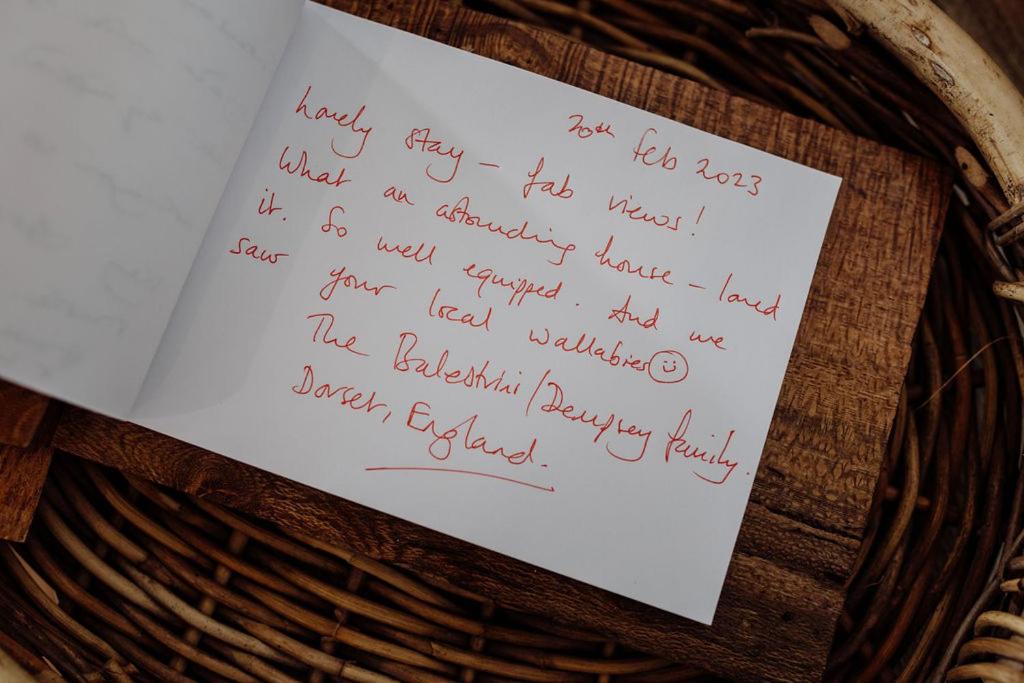 20th Feb 2023
Lovely stay - fab views!
What an astounding house - loved
it. So well equipped. And we
saw your local wallabies☺
The Balestrini/Dempsey family.
Dorset, England.